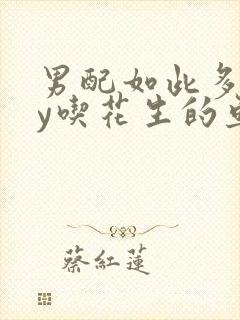 男配如此多
y喫花生的
蔡紅蓮